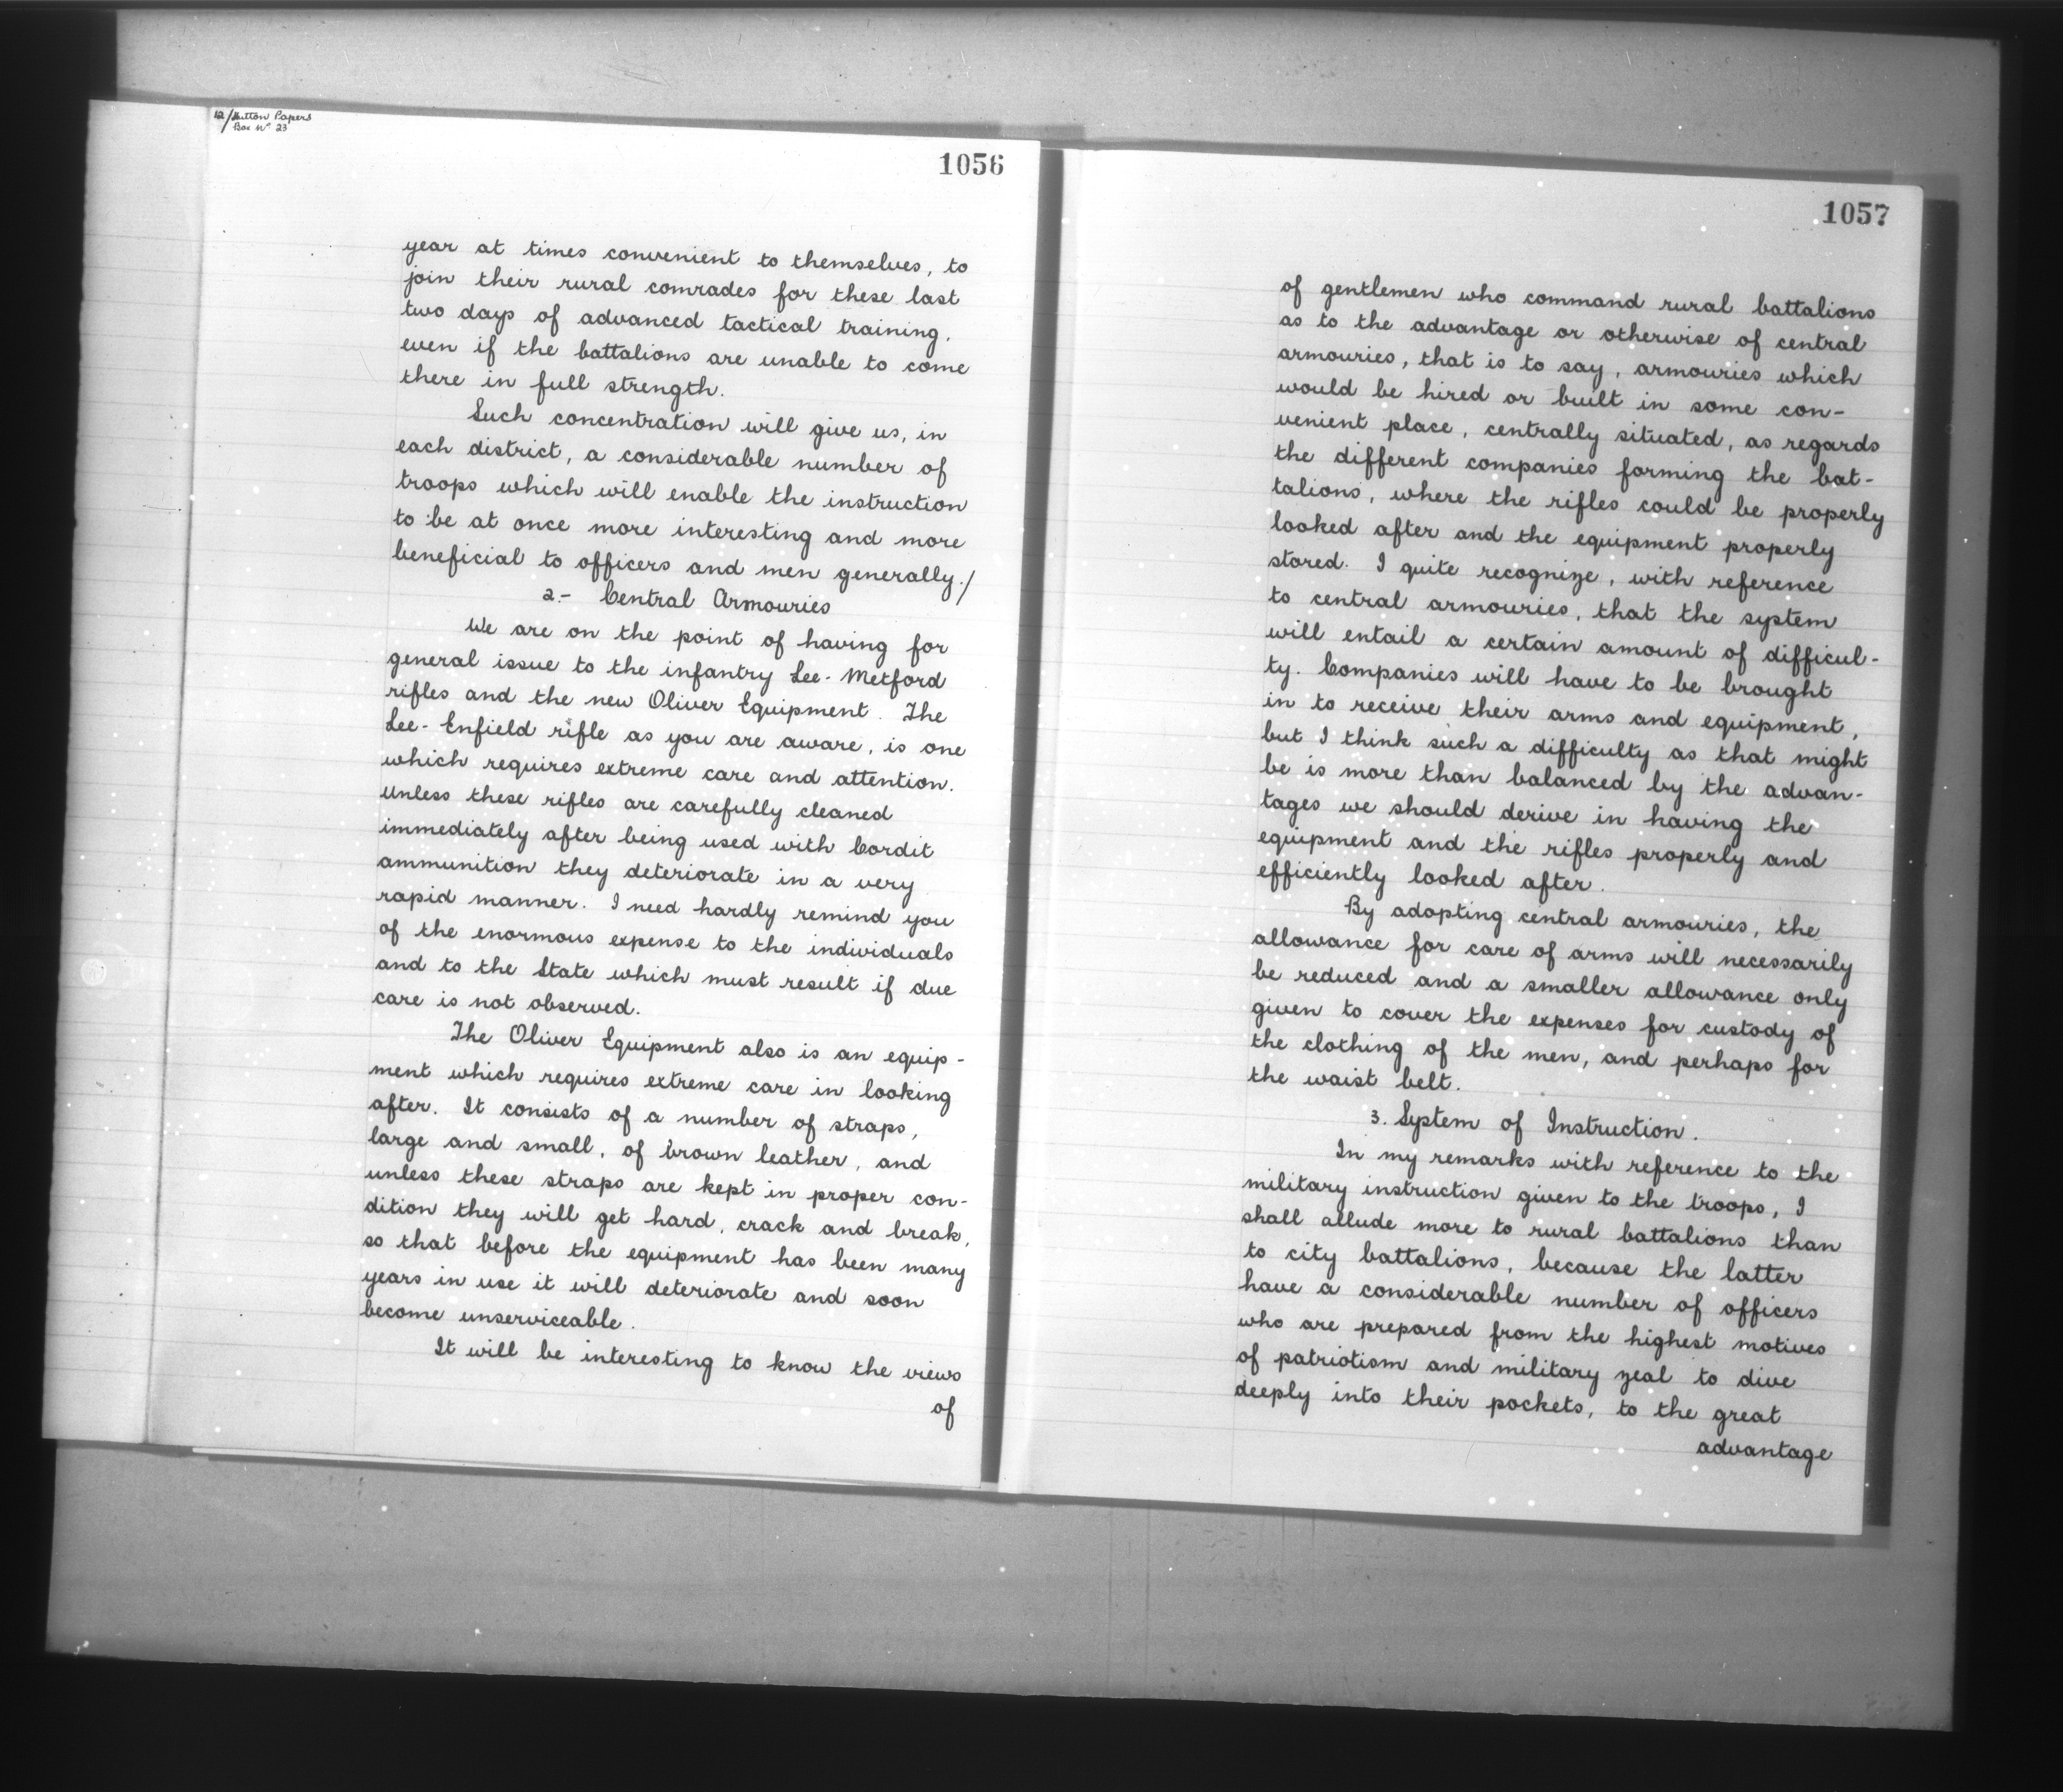 12/Hutton Papers
Box No 23
1056
year at times convenient to themselves, to
join their rural comrades for these last
two days of advanced tactical training,
even if the battalions are unable to come
there in full strength.
Such concentration will give us, in
each district, a considerable number of
troops which will enable the instruction
to be at once more interesting and more
beneficial to officers and men generally./
2.- Central Armouries
We are on the point of having for
general issue to the infantry Lee-Metford
rifles and the new Oliver Equipment. The
Lee-Enfield rifle as you are aware, is one
which requires extreme care and attention.
unless these rifles are carefully cleaned
immediately after being used with Cordit
ammunition they deteriorate in a very
rapid manner. I need hardly remind you
of the enormous expense to the individuals
and to the State which must result if due
care is not observed.
The Oliver Equipment also is an equip-
ment which requires extreme care in looking
after. It consists of a number of straps,
large and small, of brown leather, and
unless these straps are kept in proper con-
dition they will get hard, crack and break,
so that before the equipment has been many
years in use it will deteriorate and soon
become unserviceable.
It will be interesting to know the views
of
1057
of gentlemen who command rural battalions
as to the advantage or otherwise of central
armouries, that is to say, armouries which
would be hired or built in some con-
venient place, centrally situated, as regards
the different companies forming the bat-
talions, where the rifles could be properly
looked after and the equipment properly
stored. I quite recognize, with reference
to central armouries, that the system
will entail a certain amount of difficul-
ty. Companies will have to be brought
in to receive their arms and equipment,
but I think such a difficulty as that might
be is more than balanced by the advan-
tages we should derive in having the
equipment and the rifles properly and
efficiently looked after.
By adopting central armouries, the
allowance for care of arms will necessarily
be reduced and a smaller allowance only
given to cover the expenses for custody of
the clothing of the men, and perhaps for
the waist belt.
3. System of Instruction.
In my remarks with reference to the
military instruction given to the troops, I
shall allude more to rural battalions than
to city battalions, because the latter
have a considerable number of officers
who are prepared from the highest motives
of patriotism and military zeal to dive
deeply into their pockets, to the great
advantage